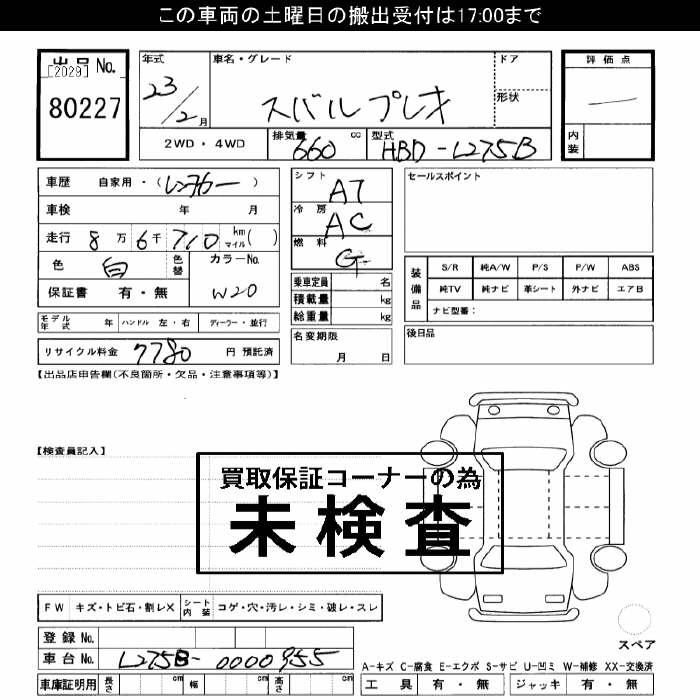 この車両の土曜日の搬出受付は17:00まで
出品 No.
[2029]
80227
年式
23/2月
車名・グレード
スバル プレオ
ドア
形状
評価点
内装
2WD・4WD
排気量
660 cc
型式
HBD-L275B
車歴 自家用・(レンタカー)
車検 年 月
走行 8万6千710 km マイル( )
色 白 色替 カラーNo. W20
保証書 有・無
シフト AT
冷房 AC
燃料 G
乗車定員 名
積載量 kg
総重量 kg
セールスポイント
装備品
S/R 純A/W P/S P/W ABS
純TV 純ナビ 革シート 外ナビ エアB
ナビ型番:
モデル年式 年 ハンドル 左・右 ディーラー・並行
名変期限 月 日
後日品
リサイクル料金 7780 円 預託済
【出品店申告欄(不良箇所・欠品・注意事項等)】
【検査員記入】
買取保証コーナーの為
未検査
FW キズ・トビ石・割レX シート内装 コゲ・穴・汚レ・シミ・破レ・スレ
登録 No.
車台 No. L275B-0000955
車庫証明用 長さ cm 幅 cm 高さ cm
スペア
A-キズ C-腐食 E-エクボ S-サビ U-凹ミ W-補修 XX-交換済
工具 有・無 ジャッキ 有・無